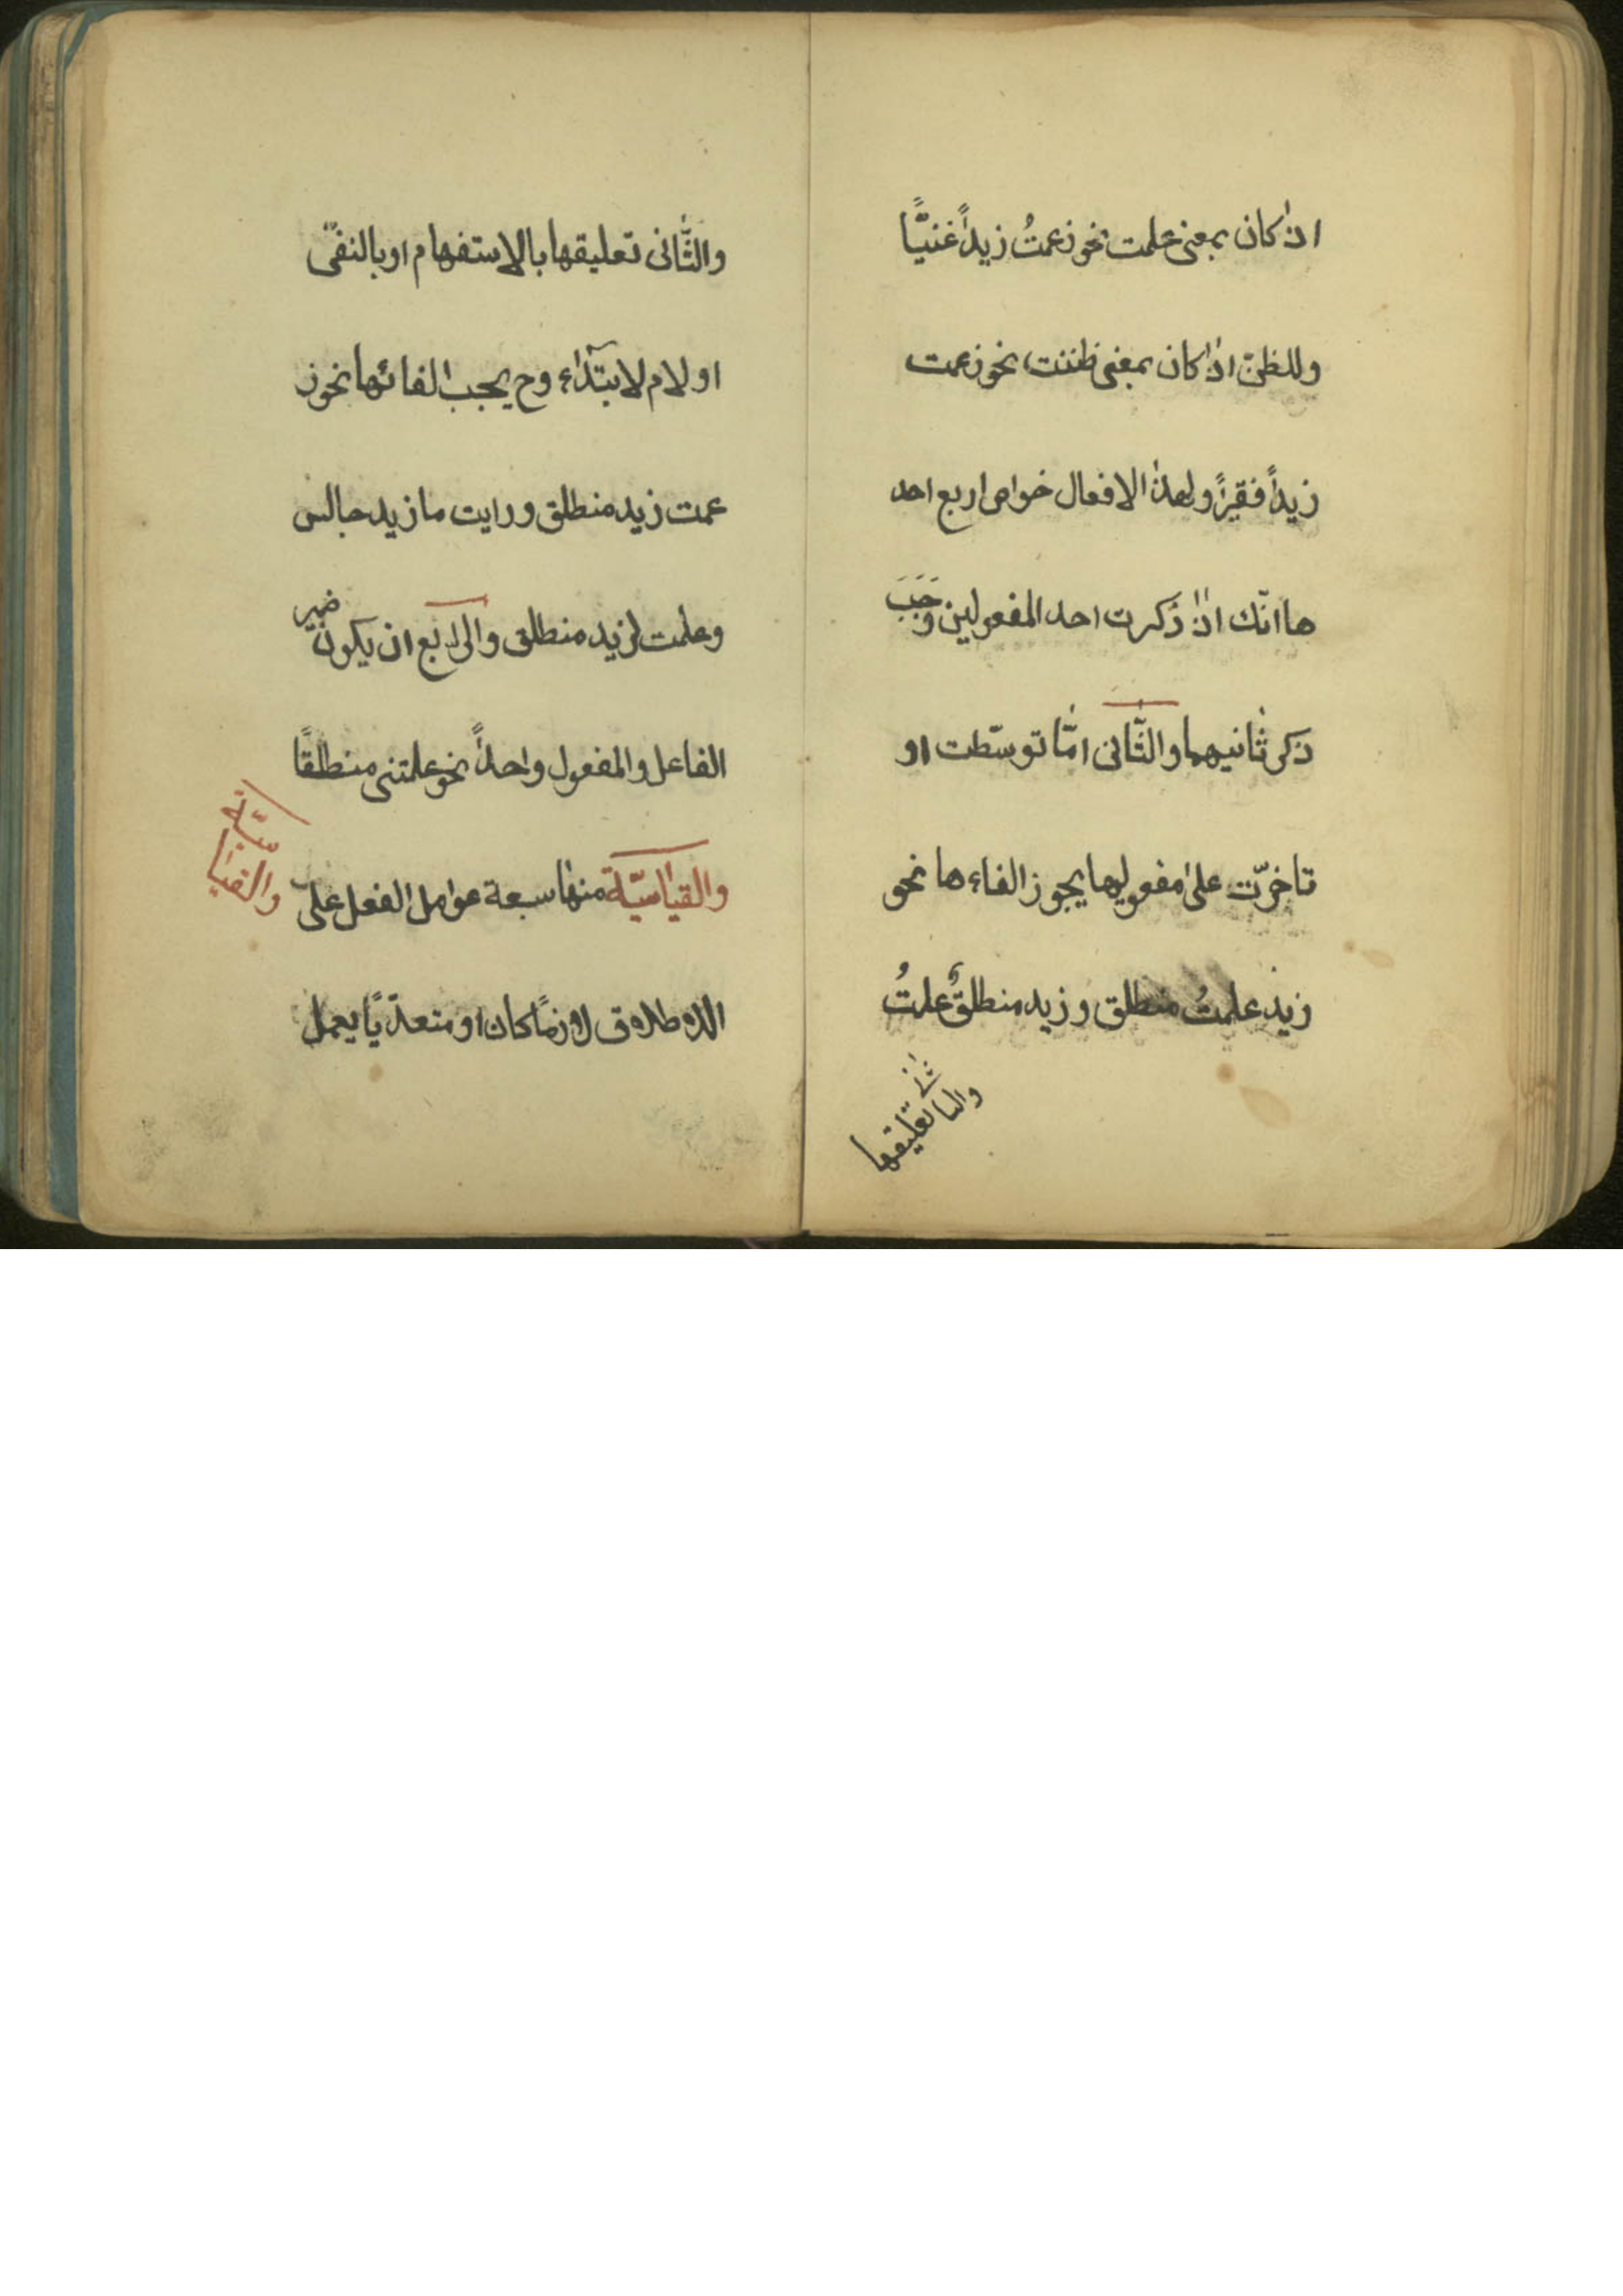 اذا كان بمعنى علمت نحو زعمتُ زيداً غنيًّا
وللظنّ اذا كان بمعنى ظننت نحو زعمت
زيداً فقيراً ولهذا الافعال خواص اربع احد
ها انّك اذا ذكرت احد المفعولين وَجَبَ
ذكر ثانيهما والثّانى امّا توسّطت او
تاخرّت على مفعوليها يجوز الفاءها نحو
زيد علمتُ منطلق وزيد منطلقٌ علمتُ
والثانى تعليقها
والثّانى تعليقها بالاستفهام او بالنفى
او لام لابتداء وح يجب الفائها نحو ز
عمت زيد منطلق ورايت ما زيد جالس
وعلمت لزيد منطلق والرابع ان يكون ضمير
الفاعل والمفعول واحداً نحو علمتنى منطلقًا
والقياسيّة منها سبعة عوامل الفعل على
الاطلاق لازمًا كان او متعدّيًا يعمل
والقياسيّة